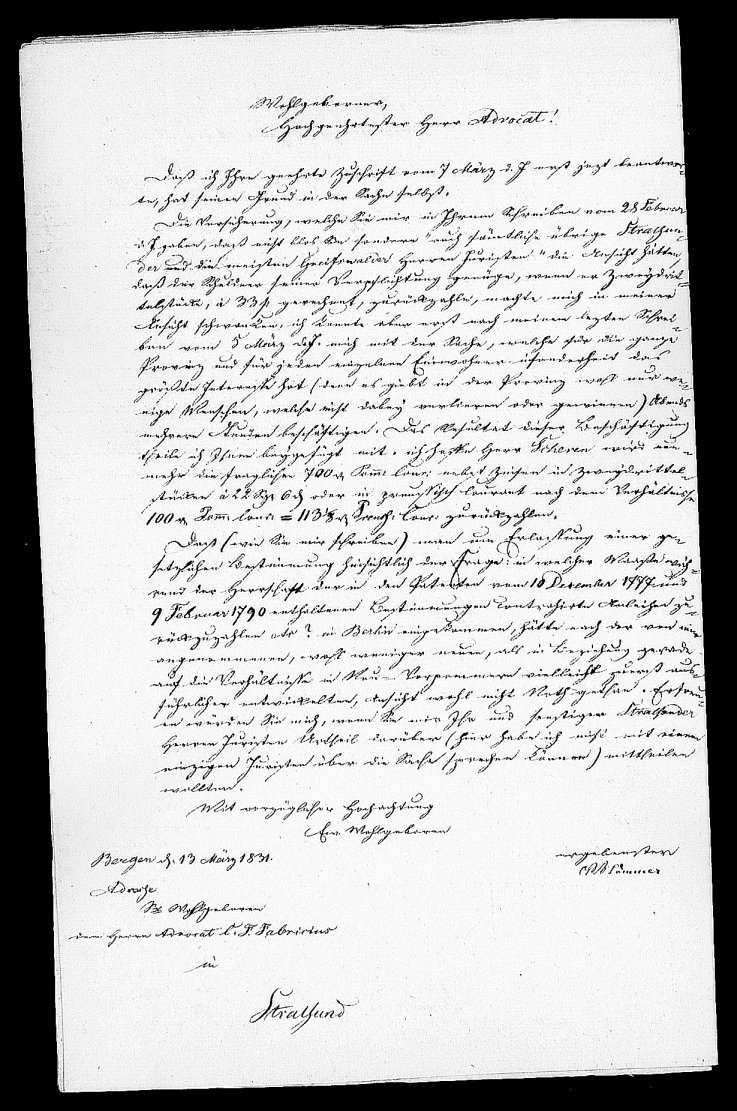 Wohlgeborner,
Hochgeehrtester Herr Advocat!
Daß ich Ihre geehrte Zuschrift vom 7 März d. J. erst jezt beantwor-
te, hat seinen Grund in der Sache selbst.
Die Versicherung, welche Sie mir in Ihrem Schreiben vom 28 Februar
d J gaben, daß nicht blos Sie sondern "auch sämtliche übrige Stralsun-
der und die meisten Greifswalder Herren Juristen" die Ansicht hätten,
daß der Schuldner seiner Verpflichtung genüge, wenn er Zweydrit-
telstücke, à 33 gerechnet, zurückzahle, machte mich in meiner
Ansicht schwanken, ich konnte aber erst nach meinem lezten Schrei-
ben vom 5 März d. J. mich mit der Sache, welche für die ganze
Provinz und für jeden einzelnen Einwohner insonderheit das
größte Interesse hat (denn es giebt in der Provinz wohl nur we-
nige Menschen, welche nicht dabey verlieren oder gewinnen) Abends
mehrere Stunden beschäftigen. Das Resultat dieser Beschäftigung
theile ich Ihnen beygefügt mit. ich hoffe Herr Scheven wird nun-
mehr die fraglichen 700 Pomm: Cour: nebst Zinsen in Zweydrittel-
stücken à 22 Sgr 6 oder in preussisch Courant nach dem Verhältnisse
100 Pomm Cour: = 113 Preuß: Cour: zurückzahlen.
Daß (wie Sie mir schreiben) man um Erlassung einer ge-
setzlichen Bestimmung hinsichtlich der Frage: in welcher Maasse wäh-
rend der Herrschaft der in den Patenten vom 10 December 1777 und
9 Februar 1790 enthaltenen Bestimmungen contrahirte Anleihen zu-
rückzuzahlen etc? in Berlin eingekommen, hätte nach der von mir
angenommenen, wohl weniger neuen, als in Beziehung gerade
auf die Verhältnisse in Neu-Vorpommern vielleicht zuerst aus-
führlicher entwickelten, Ansicht wohl nicht Noth gethan. Erfreu-
en würden Sie mich, wenn Sie mir Ihr und sonstiger Stralsunder
Herren Juristen Urtheil darüber (hier habe ich nicht mit einem
einzigen Juristen über die Sache sprechen können) mittheilen
wollten.
Mit vorzüglicher Hochachtung
Ew. Wohlgeboren
Bergen d. 13 März 1831.
ergebenster
Adresse
Sr Wohlgeboren
dem Herrn Advocat C. F. Fabricius
in
Stralsund